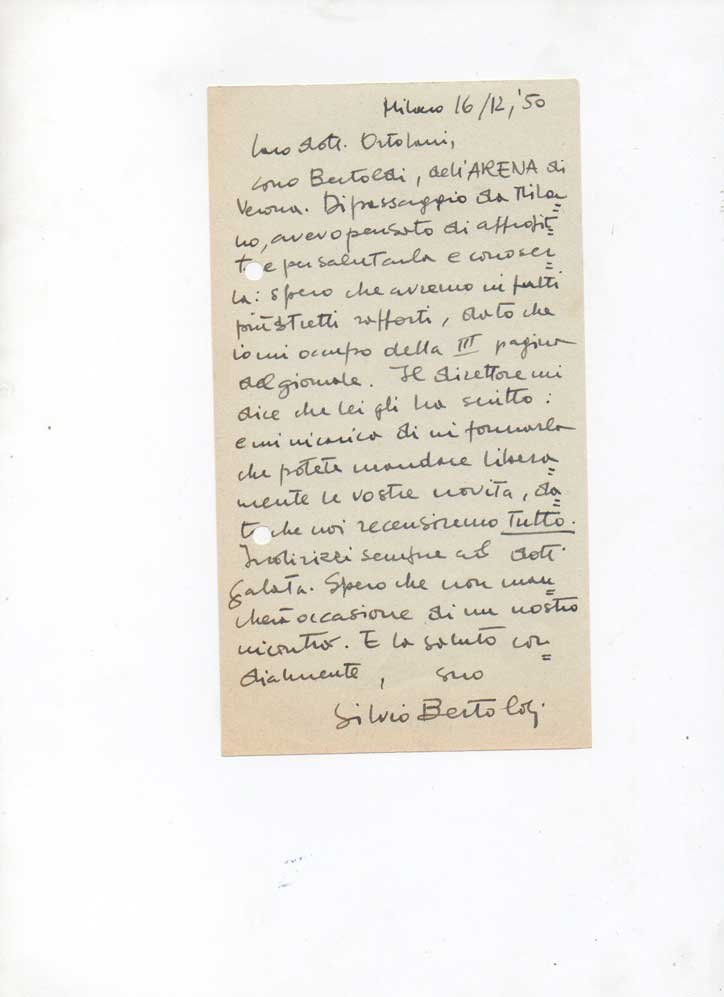 Milano 16/12,'50
Caro dott. Ortolani,
sono Bertoldi, dell'ARENA di
Verona. Di passaggio da Mila=
no, avevo pensato di approfit=
t e per salutarla e conoscer=
la: spero che avremo in fatti
più stretti rapporti, dato che
io mi occupo della III pagina
del giornale. Il direttore mi
dice che lei gli ha scritto:
e mi incarica di informarla
che potete mandare libera=
mente le vostre novità, da=
to che noi recensiremo tutto.
Indirizzi sempre al dott.
Galata. Spero che non man=
cherà occasione di un nostro
incontro. E la saluto cor=
dialmente, suo
Silvio Bertoldi.